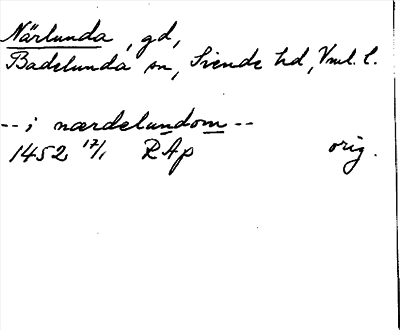 Närlunda, gd,
Badelunda sn, Siende hd, Vml. l.
-- i nærdelundom --
1452 17/1 RAp orig.